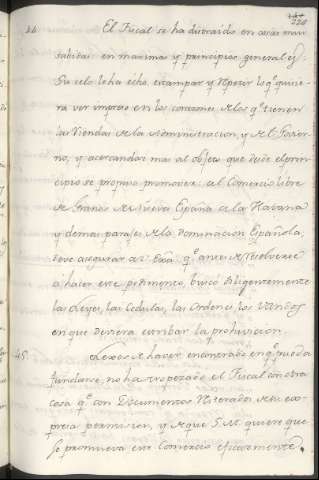 220
44 El Fiscal se ha distraido en cosas mui
sabidas en maximas y principios generales.
Su celo le ha echo estampar y repetir lo q.e quisie
ra ver impreso en los corazones de los q.e tienen
las riendas de la Administracion, y del Govier
no, y acercandose mas al objeto que desde el prin
cipio se propuso promover: el Comercio libre
de Granos de Nueva España a la Havana
y demas parajes de la dominacion Española,
deve asegurar a V. Exâ q.e antes de resolverse
á hacer este pedimento, buscó diligentemente
las Leyes, las Cedulas, las Ordenes, los Vandos
en que deviera estribar la prohivicion.
45 Lexos de haver encontrado en q.e pueda
fundarse, no ha tropezado el Fiscal con otra
cosa q.e con Documentos reiterados de su ex-
presa permision, y de que S.M. quiere que
se promueva este Comercio eficazmente.